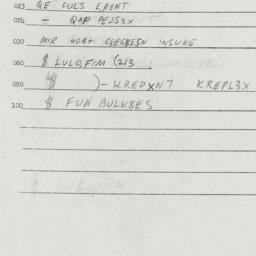 023 QE CULS ERENT
024 — QAP PEJS3X
030 MIR HOBT GSEGBESN INSUKE
060 $ LULO,F/M (213
090 $ )-KREPXN7 KREPL3X
100 $ FUN BULKBES
$ LULO,F/M